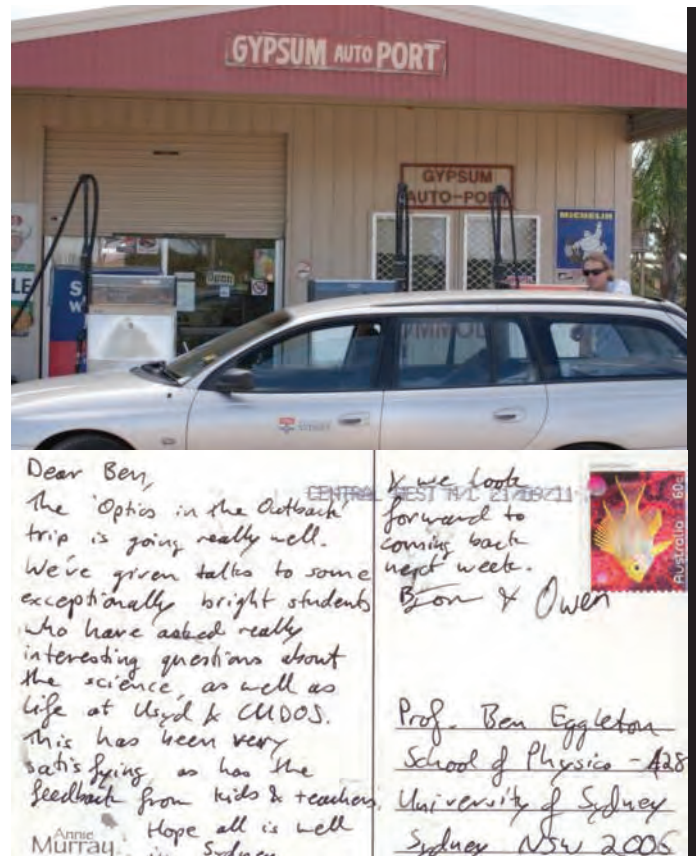 GYPSUM AUTO PORT
GYPSUM
AUTO-PORT
MICHELIN
Open
LE
S
W
SYDNEY
Dear Ben,
The 'Optics in the Outback'
trip is going really well.
We've given talks to some
exceptionally bright students
who have asked really
interesting questions about
the science, as well as
life at Usyd & CUDOS.
This has been very
satisfying, as has the
feedback from kids & teachers.
Hope all is well
in Sydney
Annie
Murray
CENTRAL WEST M/C 21/09/11
& we look
forward to
coming back
next week.
& Owen
Australia 60c
Prof. Ben Eggleton
School of Physics - A28
University of Sydney
Sydney NSW 2006